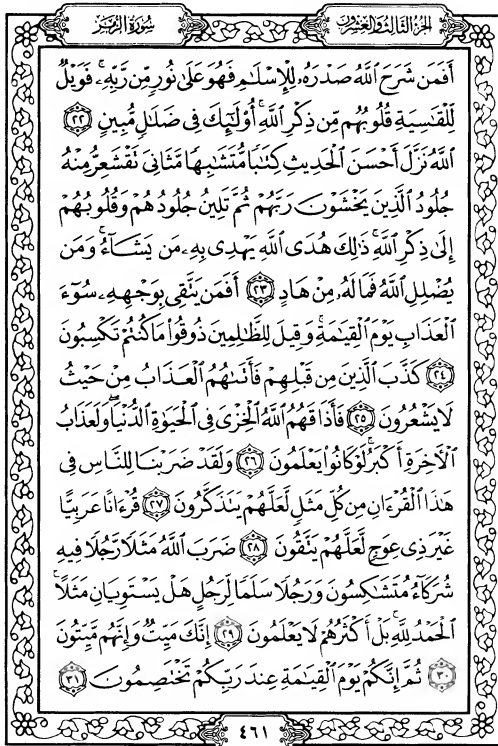 الجزء الثالث والعشرون
سورة الزمر
أَفَمَن شَرَحَ ٱللَّهُ صَدْرَهُۥ لِلْإِسْلَـٰمِ فَهُوَ عَلَىٰ نُورٍ مِّن رَّبِّهِۦ ۚ فَوَيْلٌ
لِّلْقَـٰسِيَةِ قُلُوبُهُم مِّن ذِكْرِ ٱللَّهِ ۚ أُو۟لَـٰٓئِكَ فِى ضَلَـٰلٍ مُّبِينٍ ﴿٢٢﴾
ٱللَّهُ نَزَّلَ أَحْسَنَ ٱلْحَدِيثِ كِتَـٰبًا مُّتَشَـٰبِهًا مَّثَانِىَ تَقْشَعِرُّ مِنْهُ
جُلُودُ ٱلَّذِينَ يَخْشَوْنَ رَبَّهُمْ ثُمَّ تَلِينُ جُلُودُهُمْ وَقُلُوبُهُمْ
إِلَىٰ ذِكْرِ ٱللَّهِ ۚ ذَٰلِكَ هُدَى ٱللَّهِ يَهْدِى بِهِۦ مَن يَشَآءُ ۚ وَمَن
يُضْلِلِ ٱللَّهُ فَمَا لَهُۥ مِنْ هَادٍ ﴿٢٣﴾ أَفَمَن يَتَّقِى بِوَجْهِهِۦ سُوٓءَ
ٱلْعَذَابِ يَوْمَ ٱلْقِيَـٰمَةِ ۚ وَقِيلَ لِلظَّـٰلِمِينَ ذُوقُوا۟ مَا كُنتُمْ تَكْسِبُونَ
﴿٢٤﴾ كَذَّبَ ٱلَّذِينَ مِن قَبْلِهِمْ فَأَتَىٰهُمُ ٱلْعَذَابُ مِنْ حَيْثُ
لَا يَشْعُرُونَ ﴿٢٥﴾ فَأَذَاقَهُمُ ٱللَّهُ ٱلْخِزْىَ فِى ٱلْحَيَوٰةِ ٱلدُّنْيَا ۖ وَلَعَذَابُ
ٱلْـَٔاخِرَةِ أَكْبَرُ ۚ لَوْ كَانُوا۟ يَعْلَمُونَ ﴿٢٦﴾ وَلَقَدْ ضَرَبْنَا لِلنَّاسِ فِى
هَـٰذَا ٱلْقُرْءَانِ مِن كُلِّ مَثَلٍ لَّعَلَّهُمْ يَتَذَكَّرُونَ ﴿٢٧﴾ قُرْءَانًا عَرَبِيًّا
غَيْرَ ذِى عِوَجٍ لَّعَلَّهُمْ يَتَّقُونَ ﴿٢٨﴾ ضَرَبَ ٱللَّهُ مَثَلًا رَّجُلًا فِيهِ
شُرَكَآءُ مُتَشَـٰكِسُونَ وَرَجُلًا سَلَمًا لِّرَجُلٍ هَلْ يَسْتَوِيَانِ مَثَلًا ۚ
ٱلْحَمْدُ لِلَّهِ ۚ بَلْ أَكْثَرُهُمْ لَا يَعْلَمُونَ ﴿٢٩﴾ إِنَّكَ مَيِّتٌ وَإِنَّهُم مَّيِّتُونَ
﴿٣٠﴾ ثُمَّ إِنَّكُمْ يَوْمَ ٱلْقِيَـٰمَةِ عِندَ رَبِّكُمْ تَخْتَصِمُونَ ﴿٣١﴾
٤٦١